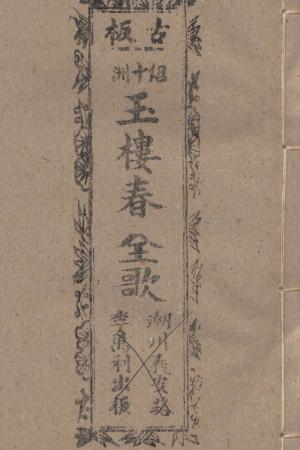 古板
十洲
玉樓春全歌
潮州義安路
李萬利出板